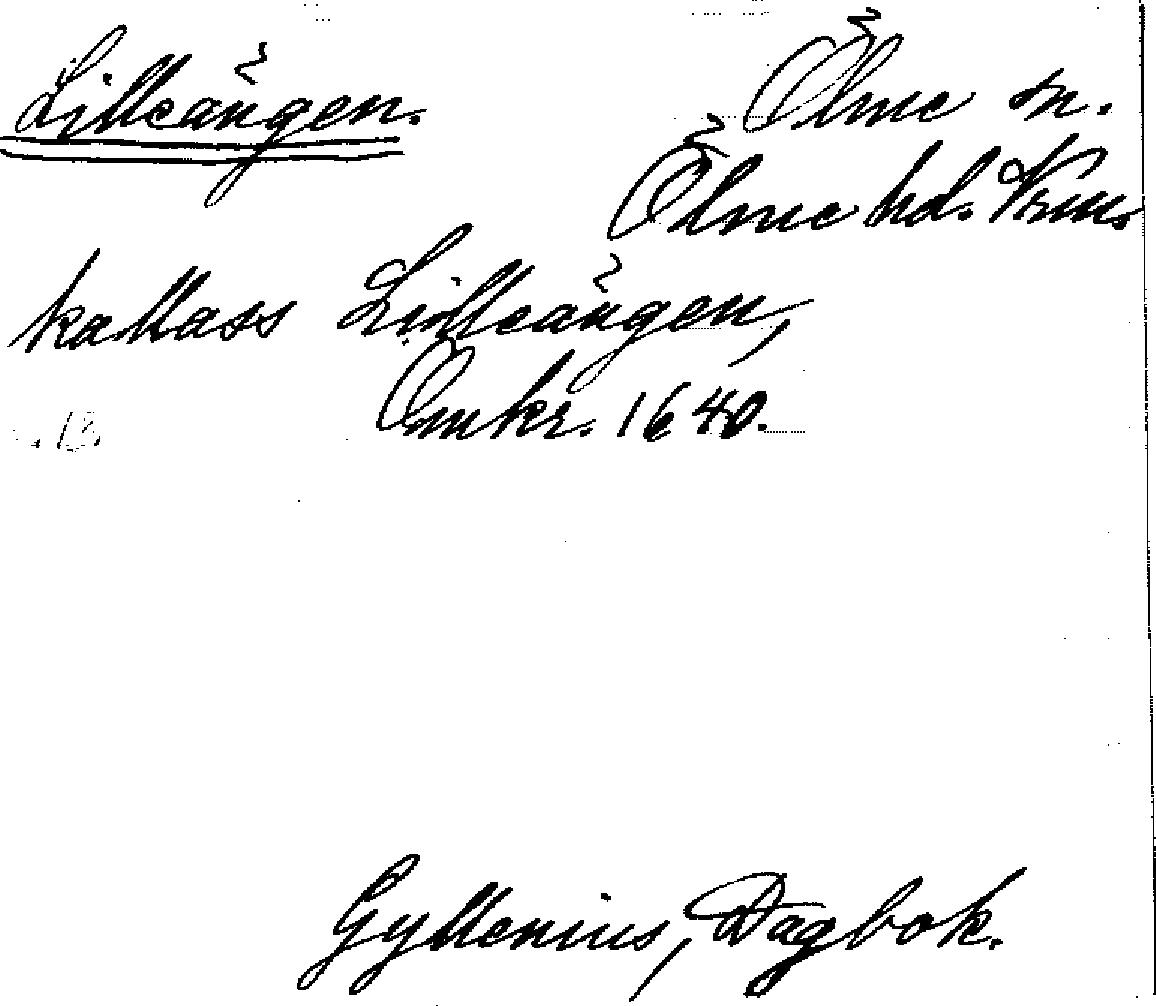 Lilleängen.
Ölme sn.
Ölme hd. Vrm.
kallass Lilleängen,
Omkr. 1640.
Gyllenius, Dagbok.